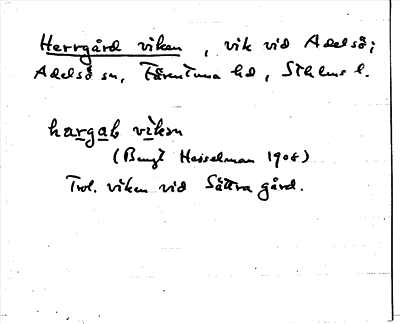 Herrgårdviken, vik vid Adelsö;
Adelsö sn, Färentuna hd, Sthlms l.
hargaḷ vikǝn
(Bengt Hesselman 1908)
Trol. viken vid Sättra gård.